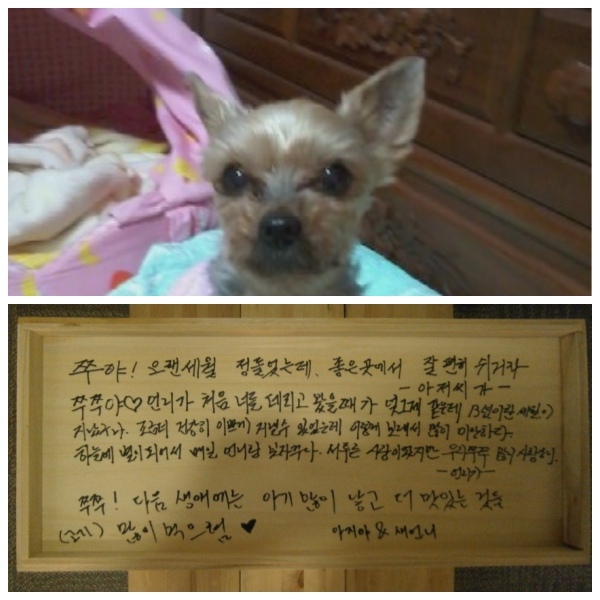 쭈야! 오랜세월 정들었는데, 좋은곳에서 잘 편히 쉬거라
- 아저씨가 -
쭈쭈야♡ 언니가 처음 너를 데리고 왔을때가 엊그제 같은데 13년이란 세월이
지났구나. 조금더 건강히 이쁘게 지낼수 있었는데 이렇게 보내서 많이 미안하다.
하늘에 별이 되어서 매일 언니랑 보자꾸나. 서투른 사랑이였지만 우리쭈쭈 많이 사랑한다.
- 언니가 -
쭈쭈! 다음 생애에는 아기 많이 낳고 더 맛있는 것을
(고기) 많이 먹으렴 ♥ 아지아 & 새언니